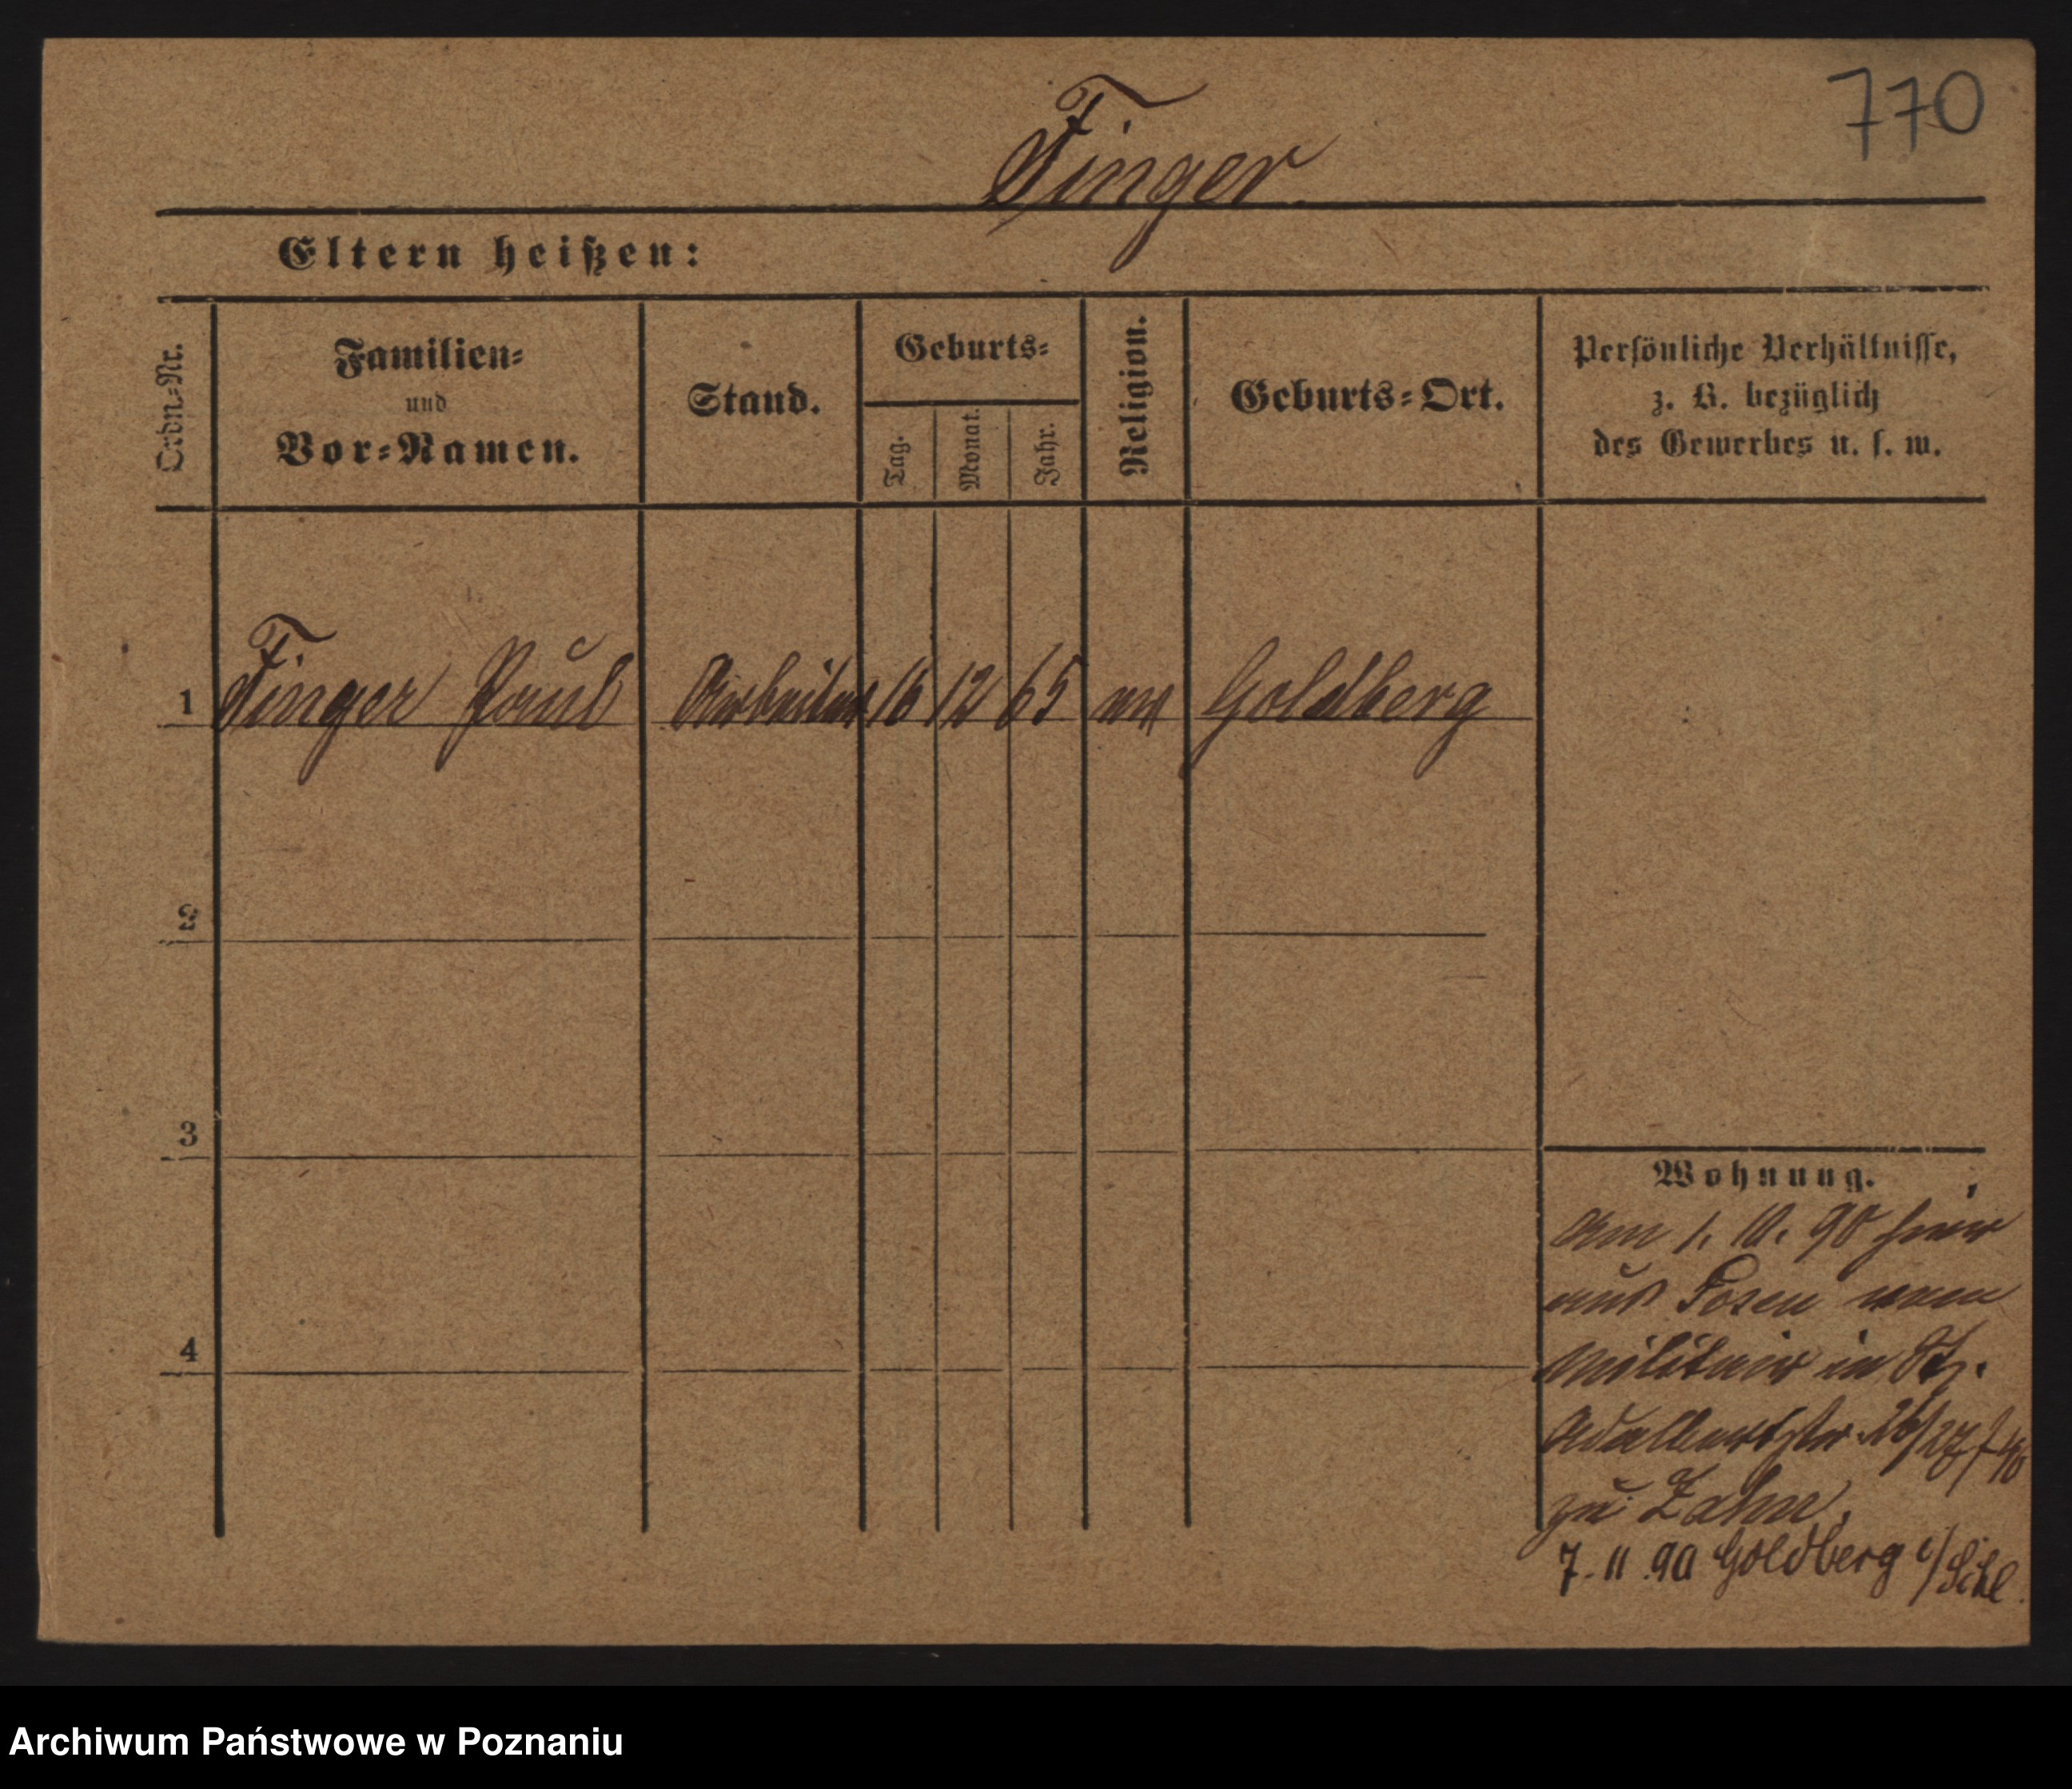 770
Finger
Eltern heißen:
Ordn=Nr.
Familien=
und
Vor=Namen.
Stand.
Geburts=
Tag.
Monat.
Jahr.
Religion.
Geburts=Ort.
Persönliche Verhältnisse,
z. B. bezüglich
des Gewerbes u. s. w.
1 Finger Paul Arbeiter 16 12 65 Goldberg
2
3
4
Wohnung.
am 1. 10. 90 hier
aus Posen vom
Militair in St.
Adalbertstr. 26/27
zu Zahn.
7. 11. 90 Goldberg i/Schl.
Archiwum Państwowe w Poznaniu